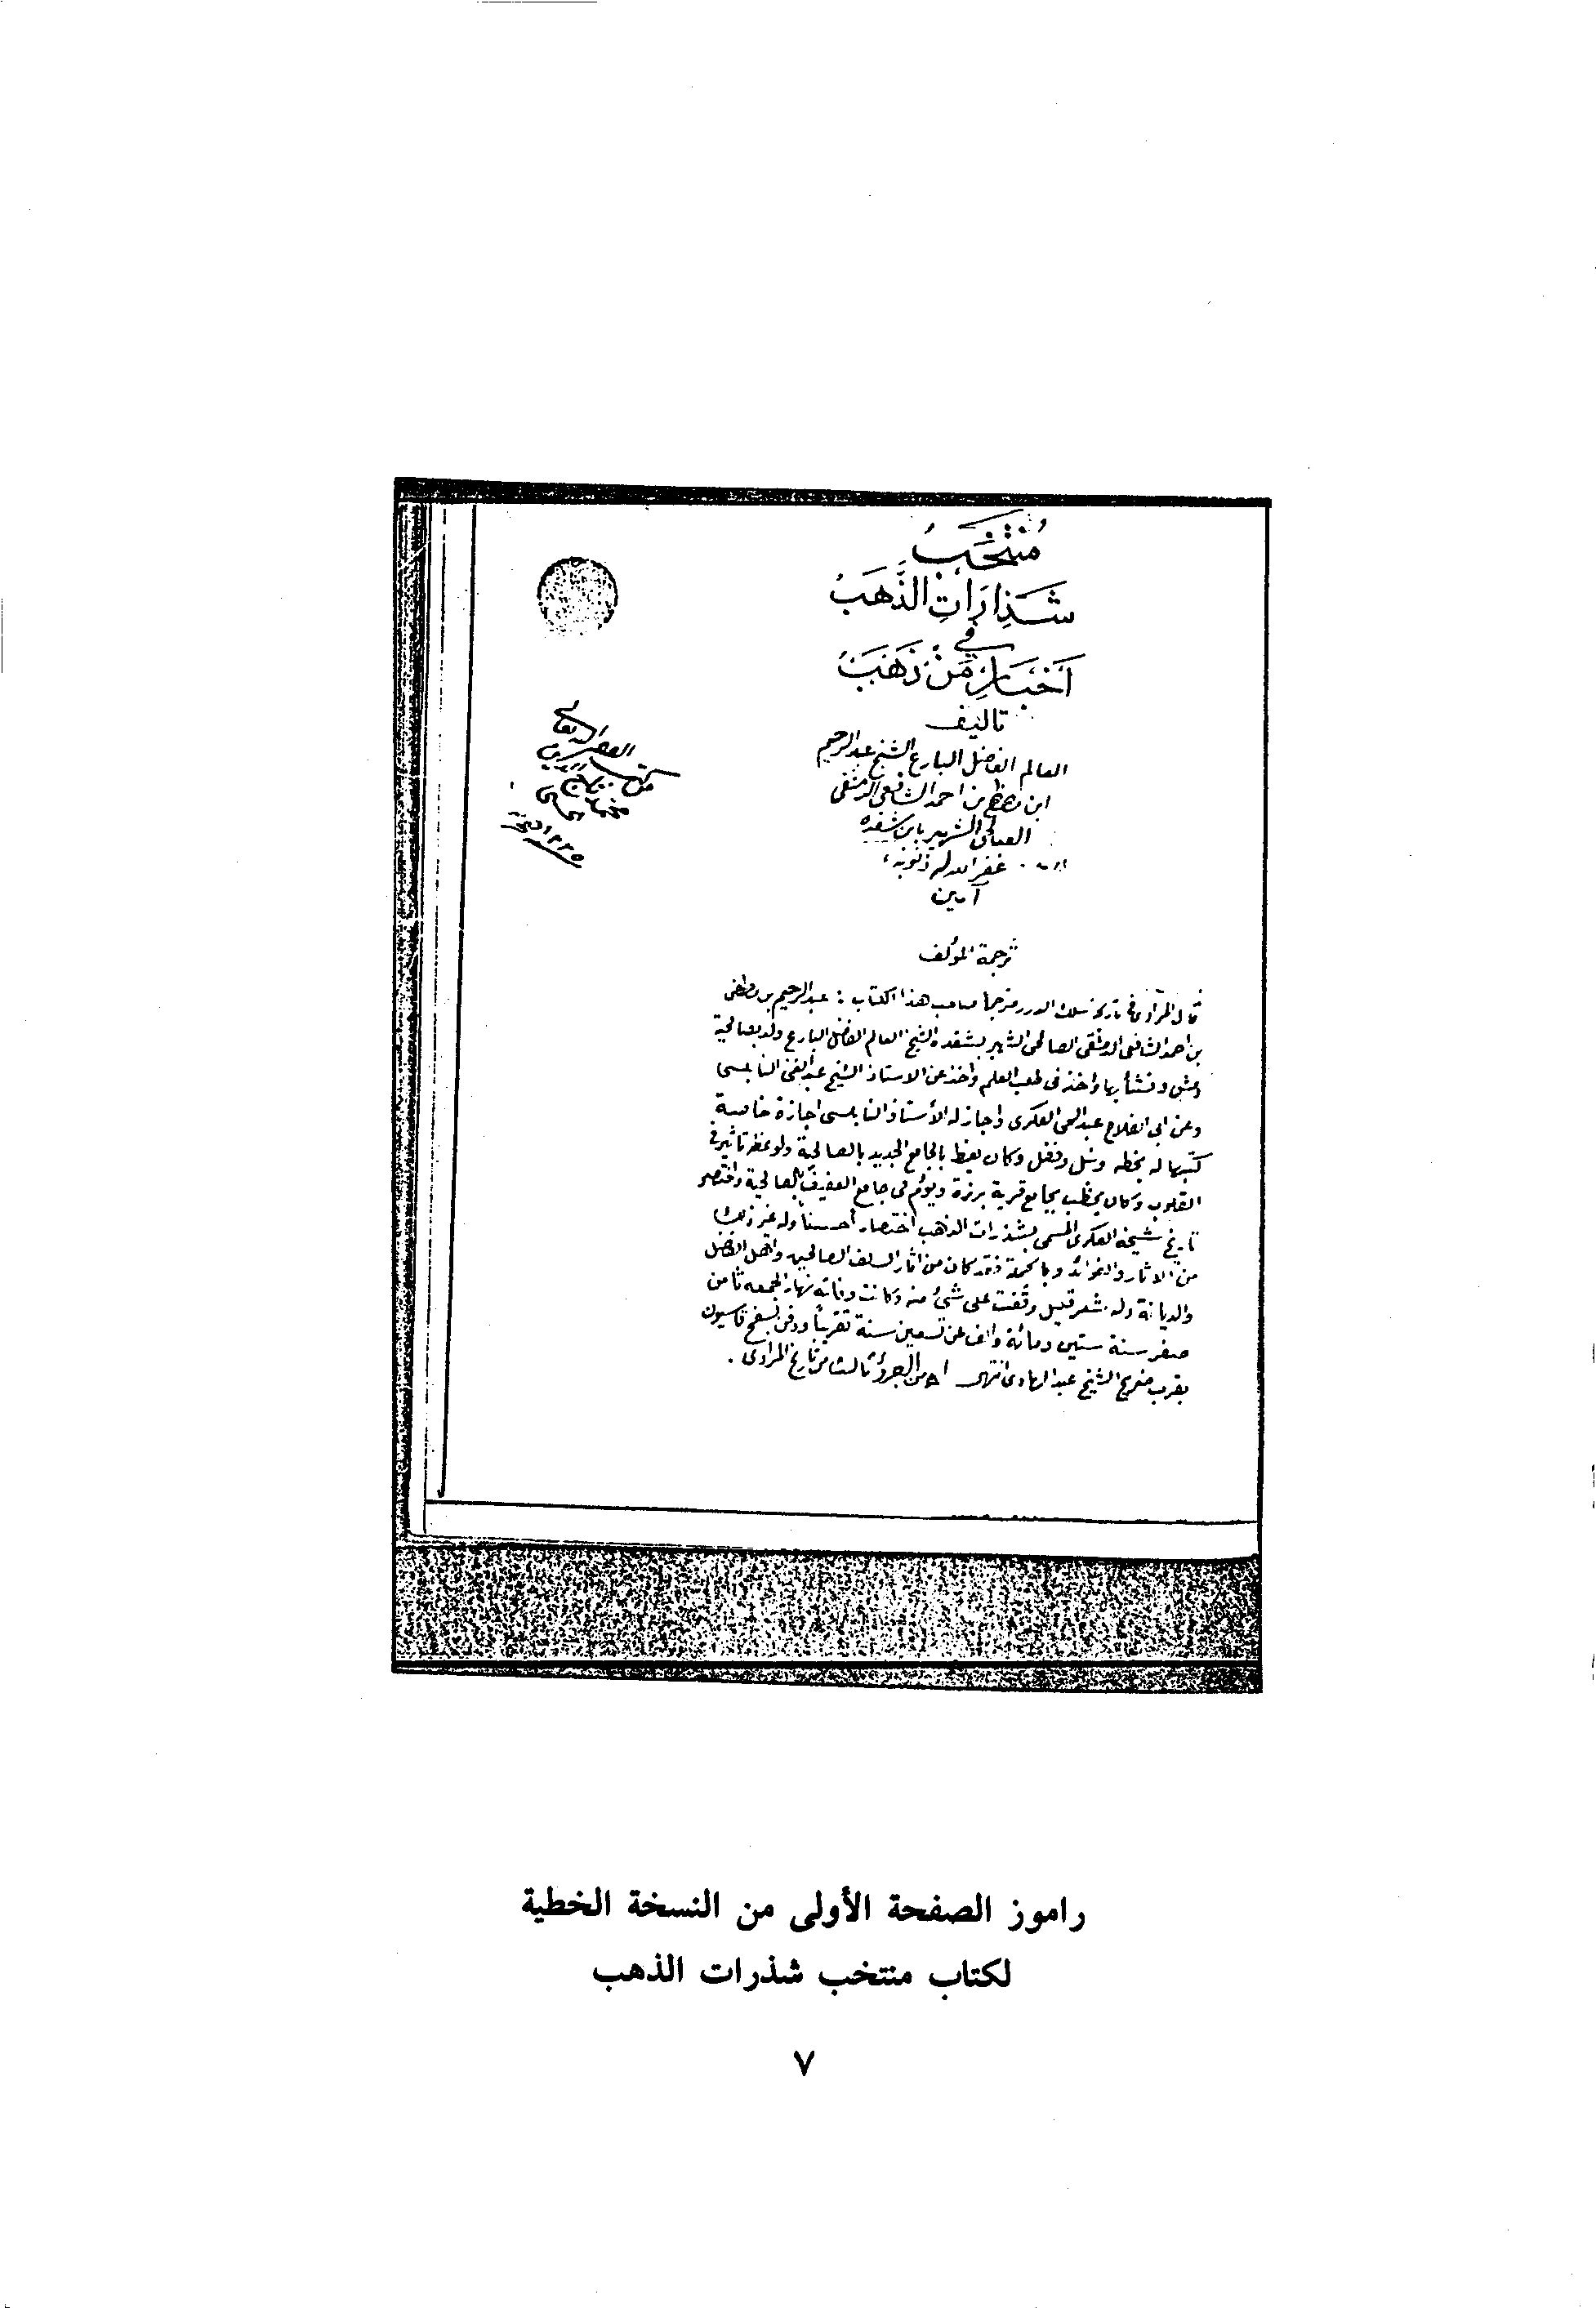 مُنْتَخَبُ
شَذَرَاتِ الذَّهَبِ
في
أَخْبَارِ مَنْ ذَهَبَ
تاليف
العالم الفاضل البارع الشيخ عبد الرحيم
ابن مصطفى بن احمد الشافعي الدمشقي
الصالحي الشهير بابن شقده
غفر الله له ذنوبه
آمين
ترجمة المؤلف
قال المرادى فى تاريخه سلك الدرر مترجماً صاحب هذا الكتاب : عبد الرحيم بن مصطفى
بن احمد الشافعى الدمشقى الصالحى الشهير بشقده الشيخ العالم الفاضل البارع ولد بصالحية
دمشق ونشأ بها واخذ فى طلب العلم واخذ عن الاستاذ الشيخ عبد الغنى النابلسى
وعن ابى الفلاح عبد الحى العكرى واجاز له الأستاذ النابلسى اجازة خاصة
كتبها له بخطه ونبل وفضل وكان يعظ بالجامع الجديد بالصالحية ولوعظه تاثير فى
القلوب وكان يخطب بجامع قرية برزة ويؤم فى جامع العفيف بالصالحية واختصر
تاريخ شيخه العكرى المسمى بشذرات الذهب اختصاراً حسناً وله غير ذلك
من الاثار والفوائد وبالجملة فقد كان من اثار السلف الصالحين واهل الفضل
والديانة وله شعر قليل وقفت على شئ منه وكانت وفاته نهار الجمعه ثامن
صفر سنة ستين ومائة والف عن تسعين سنة تقريباً ودفن بسفح قاسيون
بقرب ضريح الشيخ عبد الهادى انتهى اهـ من الجزؤ الثالث من تاريخ المرادى .
من كتب
محمد
١٣٣٥
راموز الصفحة الأولى من النسخة الخطية
لكتاب منتخب شذرات الذهب
٧